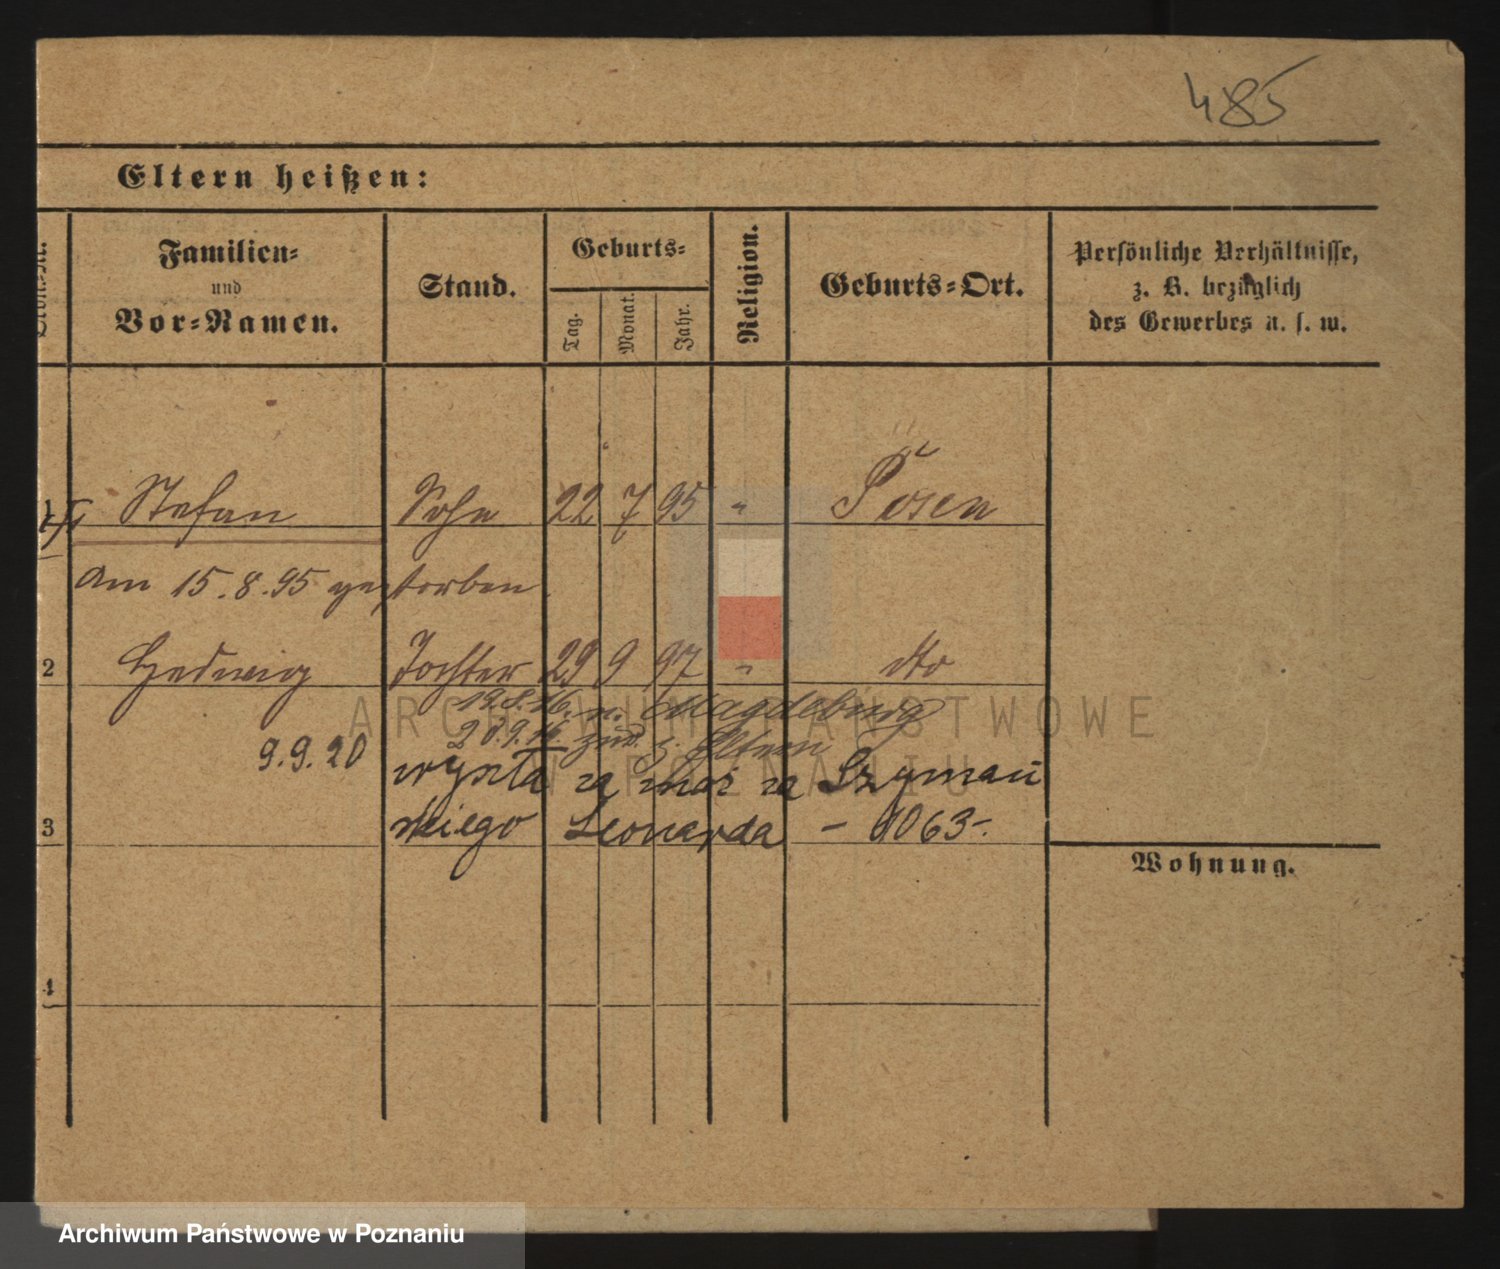 485
Eltern heißen:
Familien=
und
Vor=Namen.
Stand.
Geburts=
Tag.
Monat.
Jahr.
Religion.
Geburts=Ort.
Persönliche Verhältnisse,
z. B. bezüglich
des Gewerbes u. s. w.
1 Stefan Sohn 22 7 95 " Posen
Am 15.8.95 gestorben.
2 Hedwig Tochter 29 9 97 " dto
19.8.16. n. Magdeburg
28.9.16. zur. z. Eltern
9.9.20 wyszła za mąż za Szymań
skiego Leonarda – 1063 –.
3
Wohnung.
4
ARCHIWUM PAŃSTWOWE
W POZNANIU
Archiwum Państwowe w Poznaniu